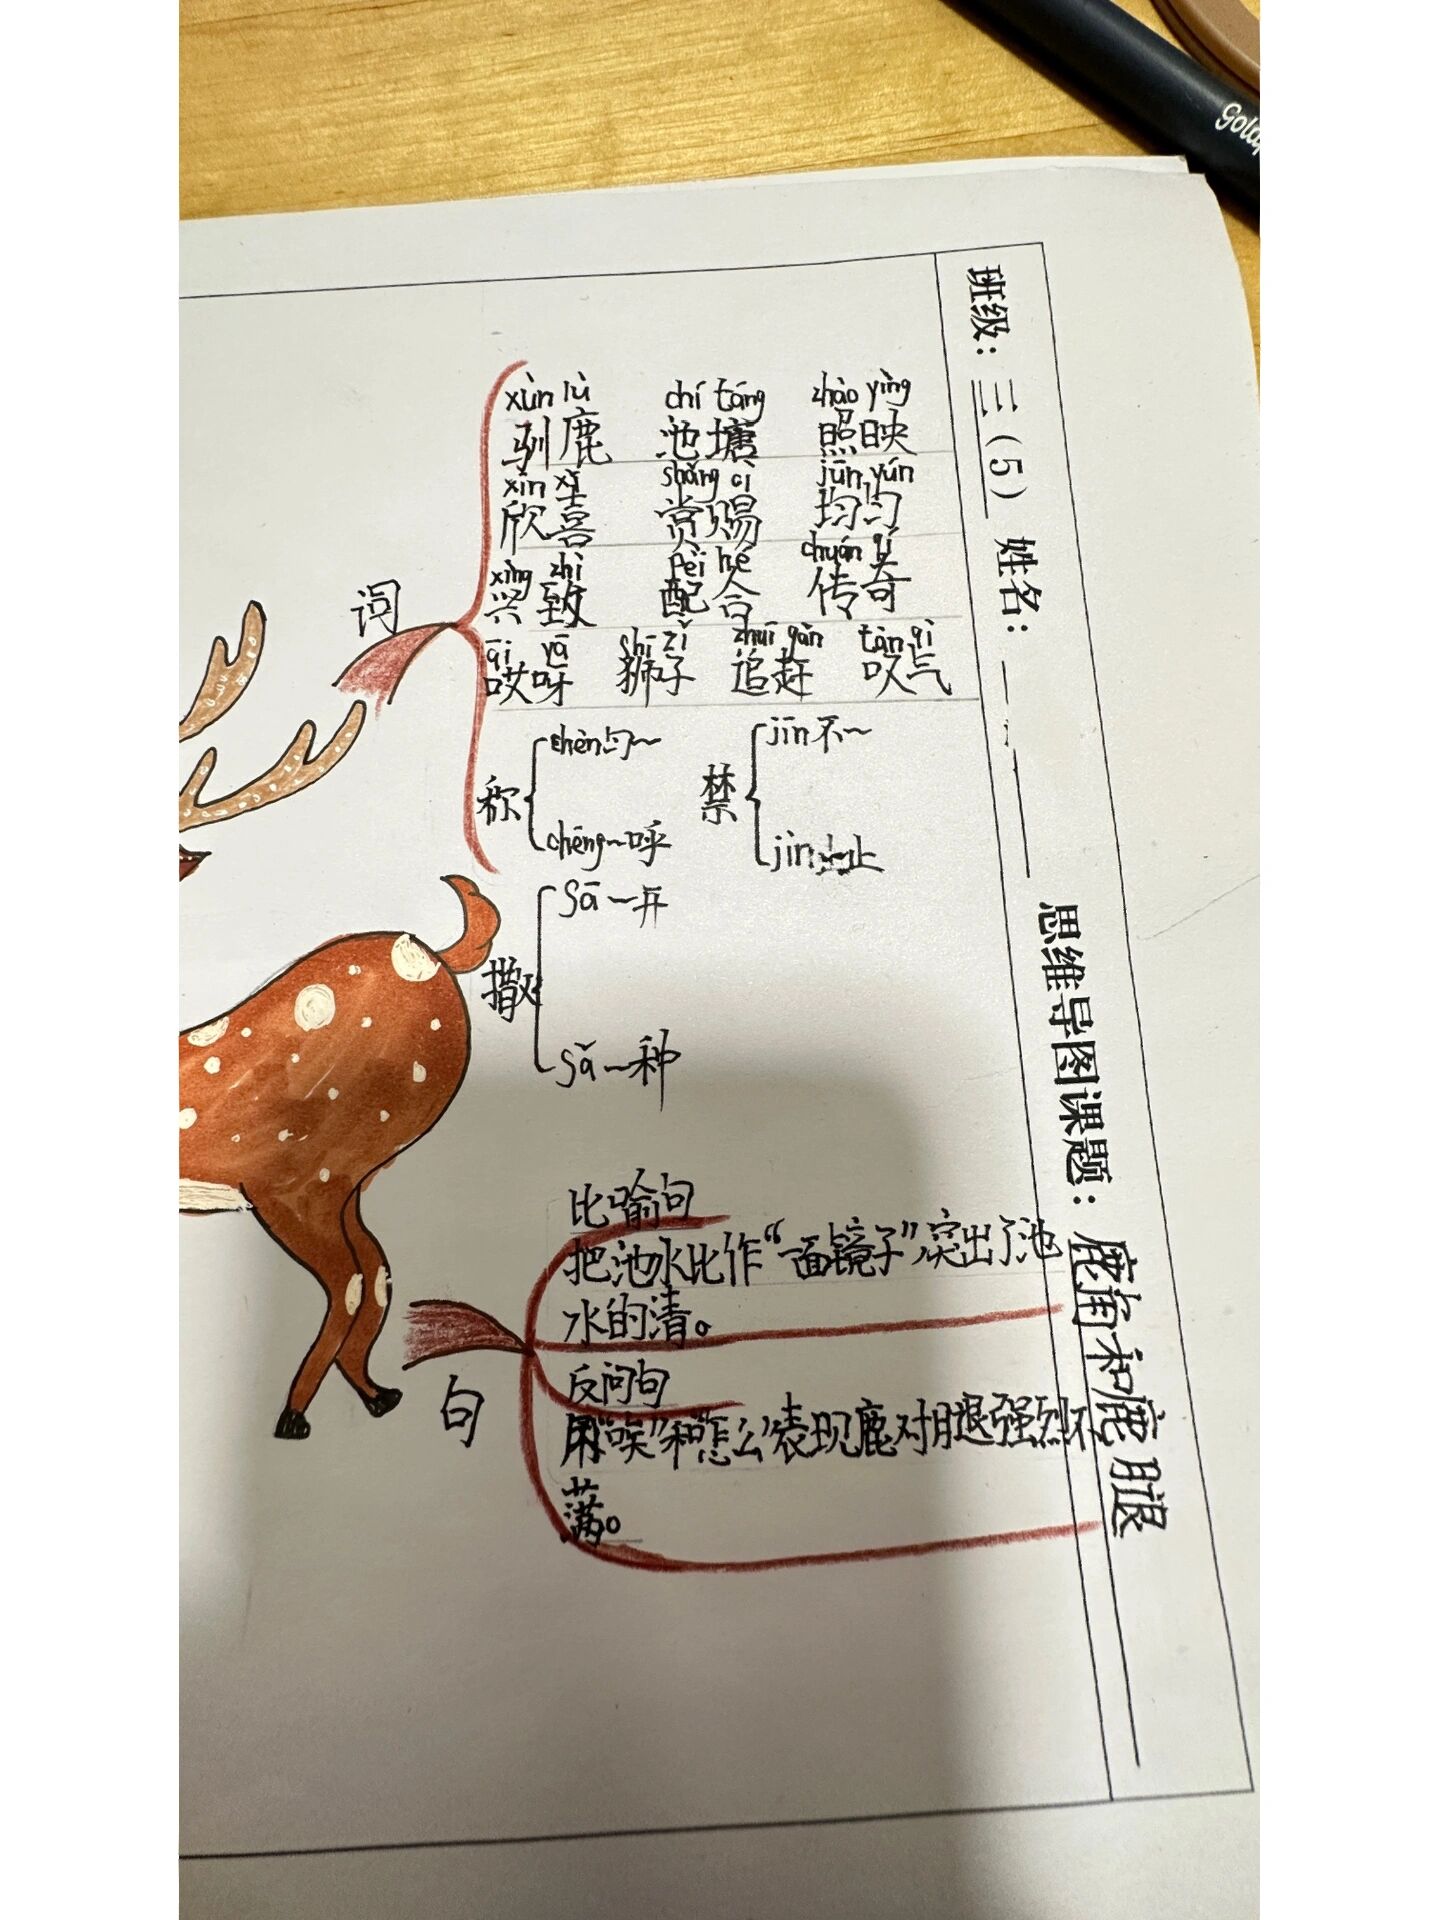 班级：三（5） 姓名： 思维导图课题：鹿角和鹿腿
词
xùn lù chí táng zhào yìng
驯鹿 池塘 照映
xīn xǐ shǎng cì jūn yún
欣喜 赏赐 均匀
xìng zhì pèi hé chuán qí
兴致 配合 传奇
āi yā shī zǐ zhuī gǎn tàn qì
哎呀 狮子 追赶 叹气
称 chèn匀~
chēng~呼
禁 jīn不~
jìn~止
撒 Sā~开
Sǎ~种
句
比喻句
把池水比作“一面镜子”突出了池
水的清。
反问句
用“唉”和“怎么”表现鹿对腿强烈不
满。